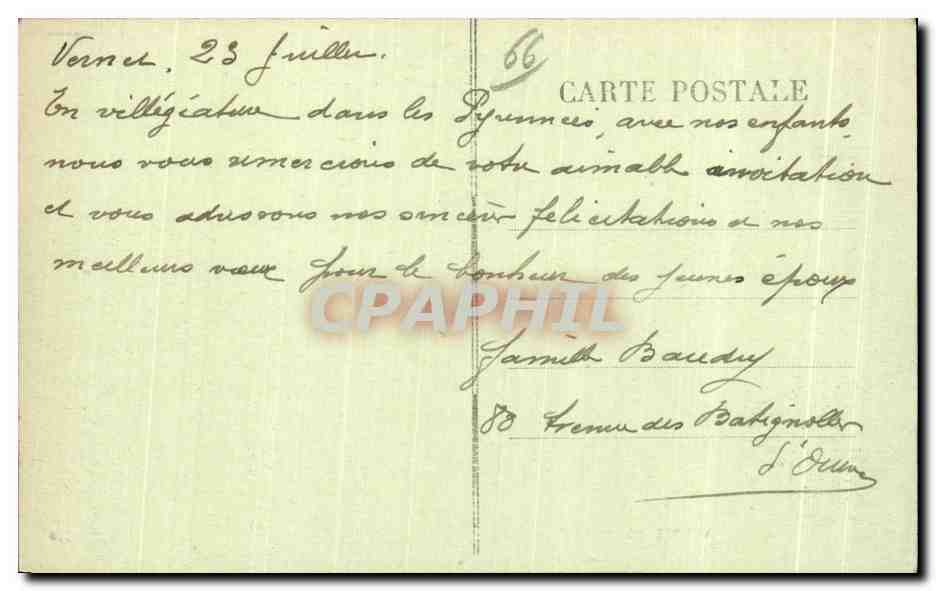 Vernet, 23 Juillet.
66
CARTE POSTALE
En villégiature dans les Pyrennées, avec nos enfants,
nous vous remercions de votre aimable invitation
et vous adressons nos sincères félicitations et nos
meilleurs vœux pour le bonheur des jeunes époux
CPAPHIL
famille Baudry
80 Avenue des Batignolles
St Ouen